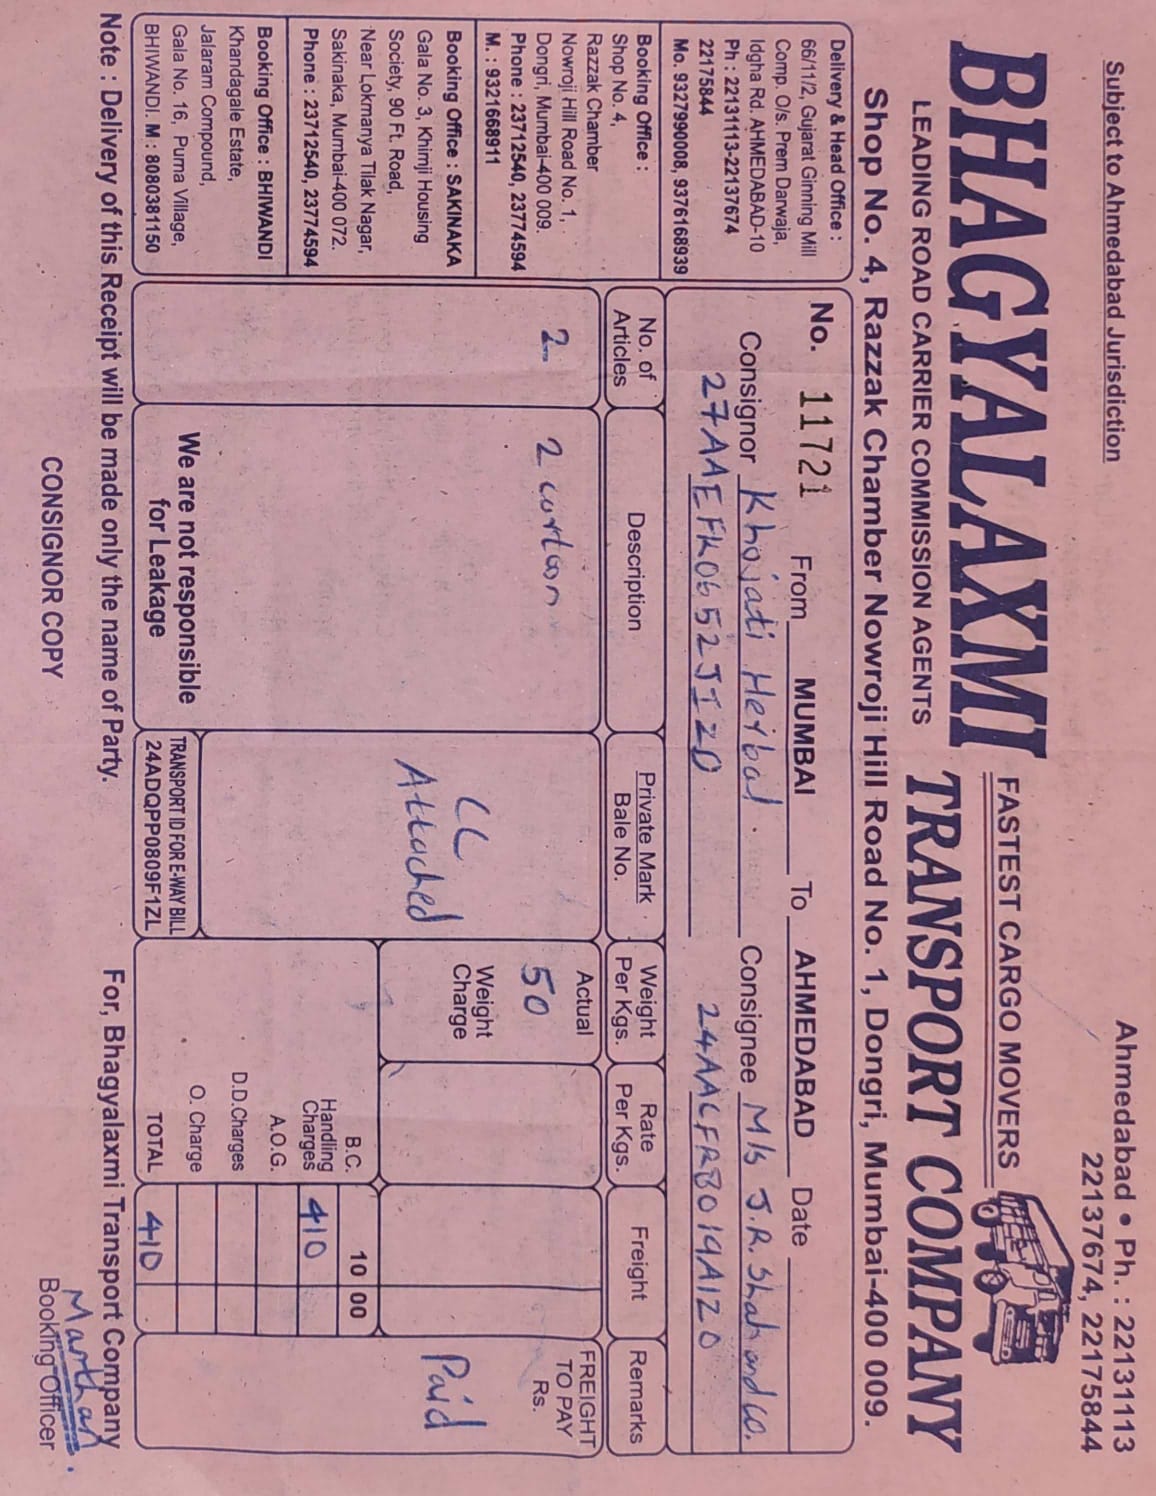 Subject to Ahmedabad Jurisdiction
Ahmedabad • Ph. : 22131113
22137674, 22175844
FASTEST CARGO MOVERS
BHAGYALAXMI TRANSPORT COMPANY
LEADING ROAD CARRIER COMMISSION AGENTS
Shop No. 4, Razzak Chamber Nowroji Hill Road No. 1, Dongri, Mumbai-400 009.
Delivery & Head Office :
66/11/2, Gujarat Ginning Mill
Comp. O/s. Prem Darwaja,
Idgha Rd. AHMEDABAD-10
Ph : 22131113-22137674
22175844
Mo. 9327990008, 9376168939
Booking Office :
Shop No. 4,
Razzak Chamber
Nowroji Hill Road No. 1,
Dongri, Mumbai-400 009.
Phone : 23712540, 23774594
M. : 9321668911
Booking Office : SAKINAKA
Gala No. 3, Khimji Housing
Society, 90 Ft. Road,
Near Lokmanya Tilak Nagar,
Sakinaka, Mumbai-400 072.
Phone : 23712540, 23774594
Booking Office : BHIWANDI
Khandagale Estate,
Jalaram Compound,
Gala No. 16, Purna Village,
BHIWANDI. M : 8080381150
No. 11721 From MUMBAI To AHMEDABAD Date
Consignor Khojati Herbal. Consignee M/s J.R. Shah and co.
27AAEFK0652J1ZD 24AACFR8019A1ZO
No. of Articles
Description
Private Mark
Bale No.
Weight Per Kgs.
Rate Per Kgs.
Freight
Remarks
2
2 carton
CC
Attached
Actual
50
Weight Charge
FREIGHT
TO PAY
Rs.
Paid
B.C. 10 00
Handling Charges 410
A.O.G.
D.D.Charges
O. Charge
TOTAL 410
We are not responsible
for Leakage
TRANSPORT ID FOR E-WAY BILL
24ADQPP0809F1ZL
Note : Delivery of this Receipt will be made only the name of Party.
For, Bhagyalaxmi Transport Company
CONSIGNOR COPY
Booking Officer